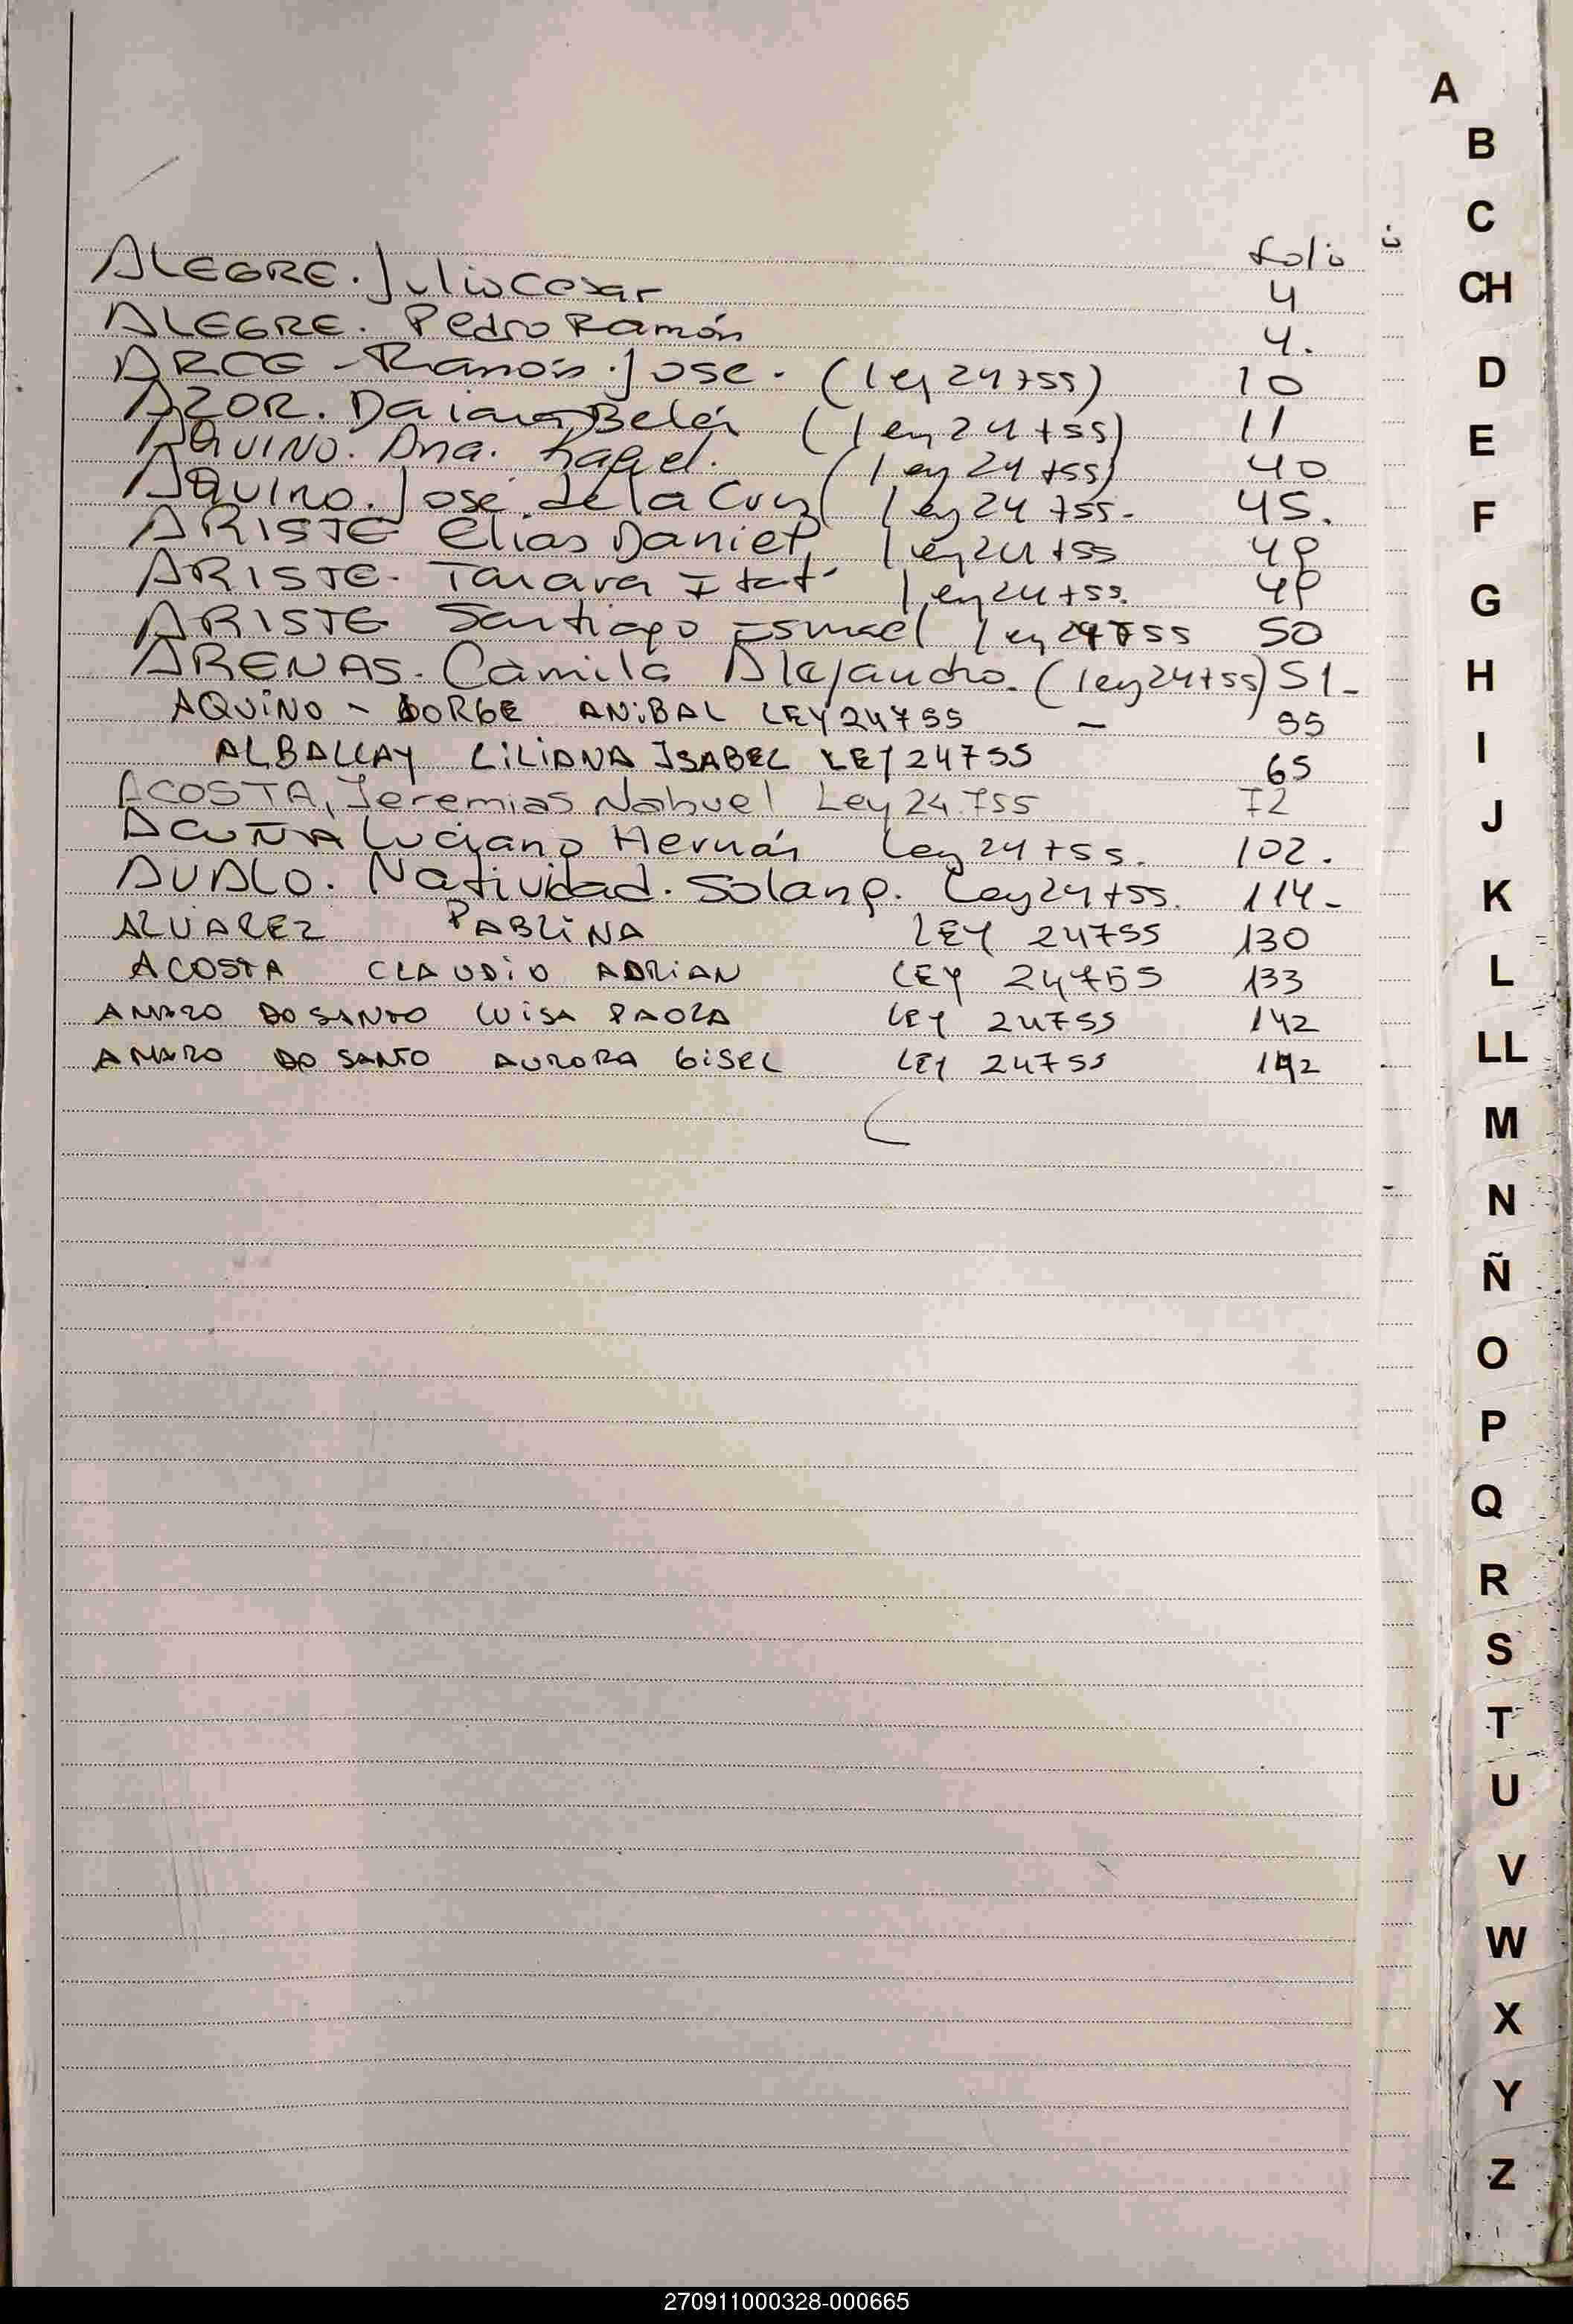 folio
ALEGRE. Julio Cesar 4
ALEGRE. Pedro Ramón 4.
ARCE - Ramón José. (ley 24755) 10
AZOR. Daiana Belén (ley 24755) 11
AQUINO. Ana. Raquel. (ley 24755) 40
AQUINO. José de la Cruz ley 24755- 45.
ARISTE Elias Daniel, ley 24755 49
ARISTE. Tamara Itatí ley 24755. 49
ARISTE Santiago Ismael ley 24755 50
ARENAS. Camila Alejandra. (ley 24755) 51-
AQUINO - JORGE ANIBAL LEY 24755 - 55
ALBALLAY LILIANA ISABEL LEY 24755 65
ACOSTA, Jeremias Nahuel Ley 24.755 72
ACUÑA Luciano Hernán Ley 24755. 102.
AVALO. Natividad. Solang. Ley 24755. 114-
ALVAREZ PABLINA LEY 24755 130
ACOSTA CLAUDIO ADRIAN LEY 24755 133
AMARO DO SANTO LUISA PAOLA LEY 24755 142
AMARO DO SANTO AURORA GISEL LEY 24755 142
A
B
C
CH
D
E
F
G
H
I
J
K
L
LL
M
N
Ñ
O
P
Q
R
S
T
U
V
W
X
Y
Z
270911000328-000665